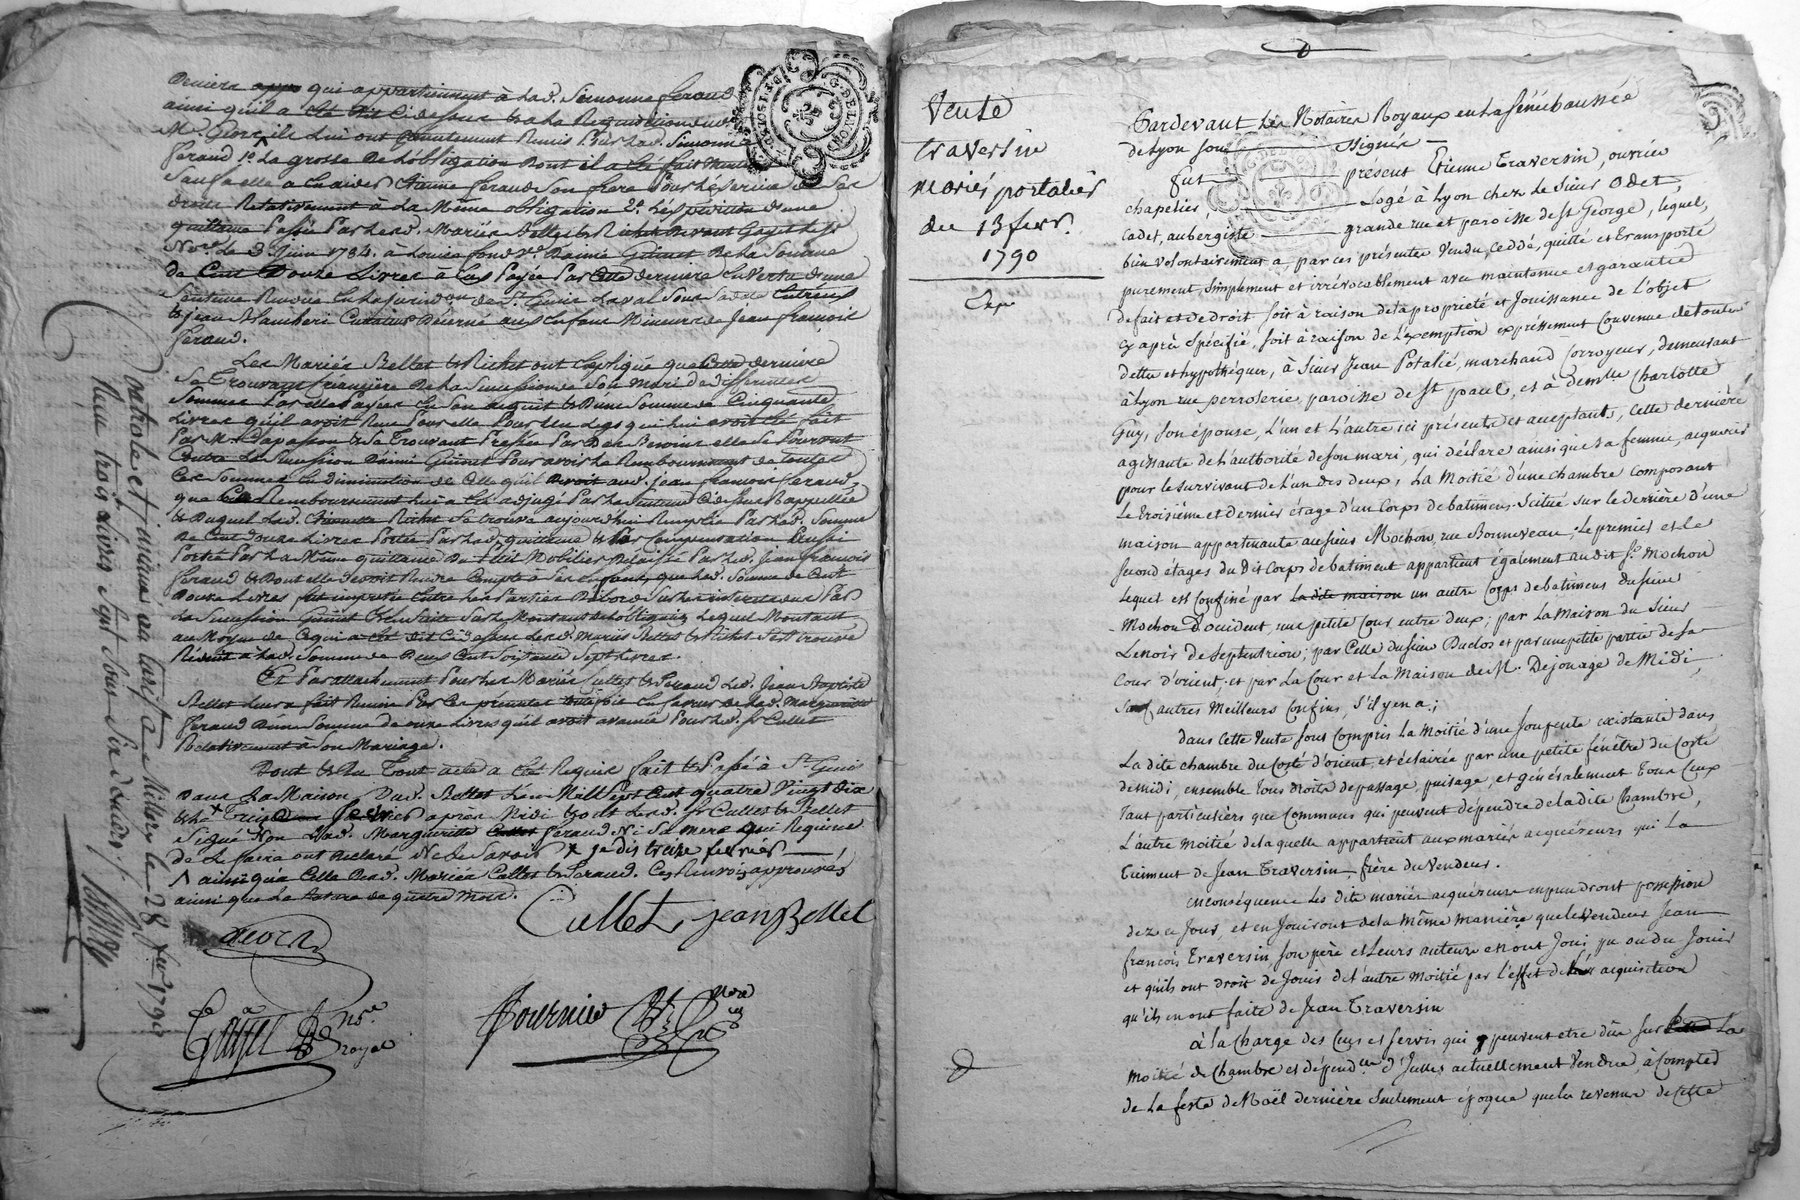 derniere qui appartiennent à lad. Simonne feraud
ainsi qu'il a été dit Cidessus
lui ont présentement Remis Par lad. Simonne
feraud 1° La grosse de L'obligation dont il a été fait mention
sauf a elle a en aider Etienne feraud son frere Pour
droits Relativement à La Même obligation 2° L'expédition d'une
quittance Passée Par lesd. Mariés Bellet & Richet Devant Gayet
Nore. Le 3 Juin 1784. à De la Somme
de Cent Douze Livres à Eux Payée Par Cette derniere En Vertu d'une
Sentence Rendue En la Jurid.on de St. Genis Laval
& jean Curateur Décerné aux Enfans Mineurs de Jean françois
feraud.
Les Mariés Bellet & Richet ont Expliqué que Cette derniere
Se Trouvant Créancière De la Succession de Son Mari de differentes
Sommes Par elle Payées En Son acquit & d'une Somme de Cinquante
Livres qu'il avoit Reçue Pour elle Pour un Legs qui lui avoit été fait
Par M. & Se Trouvant Pressée Par Des Besoins elle Se Pourvut
Contre La Succession Pour avoir Le Remboursement de toutes
Ces Sommes En diminution de Celle qu'il devoit aud. jean françois feraud,
que Ce Remboursement lui a été adjugé Par la Sentence Cidessus Rappellée
& Duquel Lad. Richet Se trouve aujourd'hui Remplie Par lad. Somme
de Cent douze Livres Portée Par lad. quittance & Par Compensation
Portée Par la Même quittance Du Petit Mobilier Délaissé Par led. Jean françois
feraud & Dont elle devoit Rendre Compte à Ses enfans, que lad. Somme de Cent
Douze Livres fut imputée entre Les Parties D'abord Sur Les interets dus Par
La Succession Et Ensuite Sur Le Montant de L'obligation Lequel Montant
au Moyen de Ce qui a été dit Cidessus Lesd. Mariés Bellet & Richet Se Trouve
Réduit à lad. Somme de Deux Cent Soixante Sept Livres.
Et Par attachement Pour Les Mariés Cullet & feraud Led. Jean Baptiste
Bellet Leur a fait Remise Par Ces présentes En faveur de lad. Marguerite
feraud D'une Somme de Livres qu'il avoit avancée Pour led. Sr Cullet
Relativement à Son Mariage.
Dont & Du Tout acte a été Requis fait & Passé à St Genis
dans La Maison Dud. Bellet L'an Mil Sept Cent quatre Vingt Dix
& Le fevrier après Midi & ont Lesd. Srs Cullet & Bellet
Signé Non Lad. Marguerite feraud Ni Sa Mere qui Requises
De Le faire ont Declaré Ne Le Savoir × je dis treize fevrier
Λ ainsi qu'à Celle Desd. Mariés Cullet & feraud. Ces Renvois approuvés
ainsi que La Rature de quatre Mots.
Cullet jean Bellet
Gayet nre.
royal
Fournier
Controlé et insinué au tarif à Millery le 28 fevr. 1790
Reçu trois livres sept sous six deniers
Vente
traversin
mariés portalier
du 13 fevr.
1790
Exp
Pardevant Les Notaires Royaux en La Sénéchaussée
de Lyon sous ssignés
fut présent Etienne Traversin, ouvrier
chapelier, Logé à Lyon chez Le Sieur Odet,
Cadet, aubergiste grande rue et paroisse de St George, lequel,
bien volontairement a, par ces présentes vendu, ceddé, quitté et transporté
purement, simplement et irrévocablement avec maintenue et garantie
de fait et de droit soit à raison de la propriété et Jouissance de L'objet
cy après Spécifié, soit à raison de L'exemption expréssement Convenue de toutes
dettes et hypothéques, à Sieur Jean Potalié, marchand Corroyeur, demeurant
à Lyon rue perroserie, paroisse de St paul, et à dem.lle Charlotte
Guy, son épouse, L'un et L'autre ici présents et acceptants, cette dernière
agissante de L'authorité de son mari, qui déclare ainsi que sa femme, acquerir
pour le survivant de L'un des deux, La Moitié d'une chambre composant
Le troisième et dernier étage d'un Corps de batimens Scitué sur le derrière d'une
maison appartenante au sieur Mochon, rue Bonneveau, Le premier et le
second étages du Dit Corps de batiment appartient également au dit Sr. Mochon
Lequel est Confiné par la dite maison un autre Corps de batimens du sieur
Mochon D'occident, une petite Cour entre deux; par La Maison du Sieur
Lenoir de Septentrion; par Celle du sieur Duclos et par une petite partie de sa
Cour d'orient, et par La Cour et La Maison de M. Dejonage de Midi,
Sauf autres Meilleurs Confins, s'il y en a;
dans Cette Vente sous Compris La Moitié d'une soupente existante dans
La dite chambre du Costé d'orient, et éclairée par une petite fenêtre du Costé
de midi, ensemble tous droits de passage, puisage, et généralement tous Ceux
tant particuliers que Communs qui peuvent dépendre de la dite Chambre,
L'autre moitié de laquelle appartient aux mariés acquéreurs qui La
tiennent de Jean Traversin, frère du Vendeur.
en conséquence Les dits mariés acquéreurs en prendront possession
dez ce Jour, et en Jouiront de la même manière que le Vendeur Jean
françois Traversin son père et Leurs auteurs en ont Joui, pu ou du Jouir
et qu'ils ont droit de Jouir de L'autre Moitié par L'effet de acquisition
qu'ils en ont faite de Jean Traversin
à la Charge des Cens et servis qui peuvent etre dûs sur La
Moitié de Chambre et dépend.ces d'Icelles actuellement Vendue, à compter
de La feste de Noël dernière seulement époque que les revenus de Cette